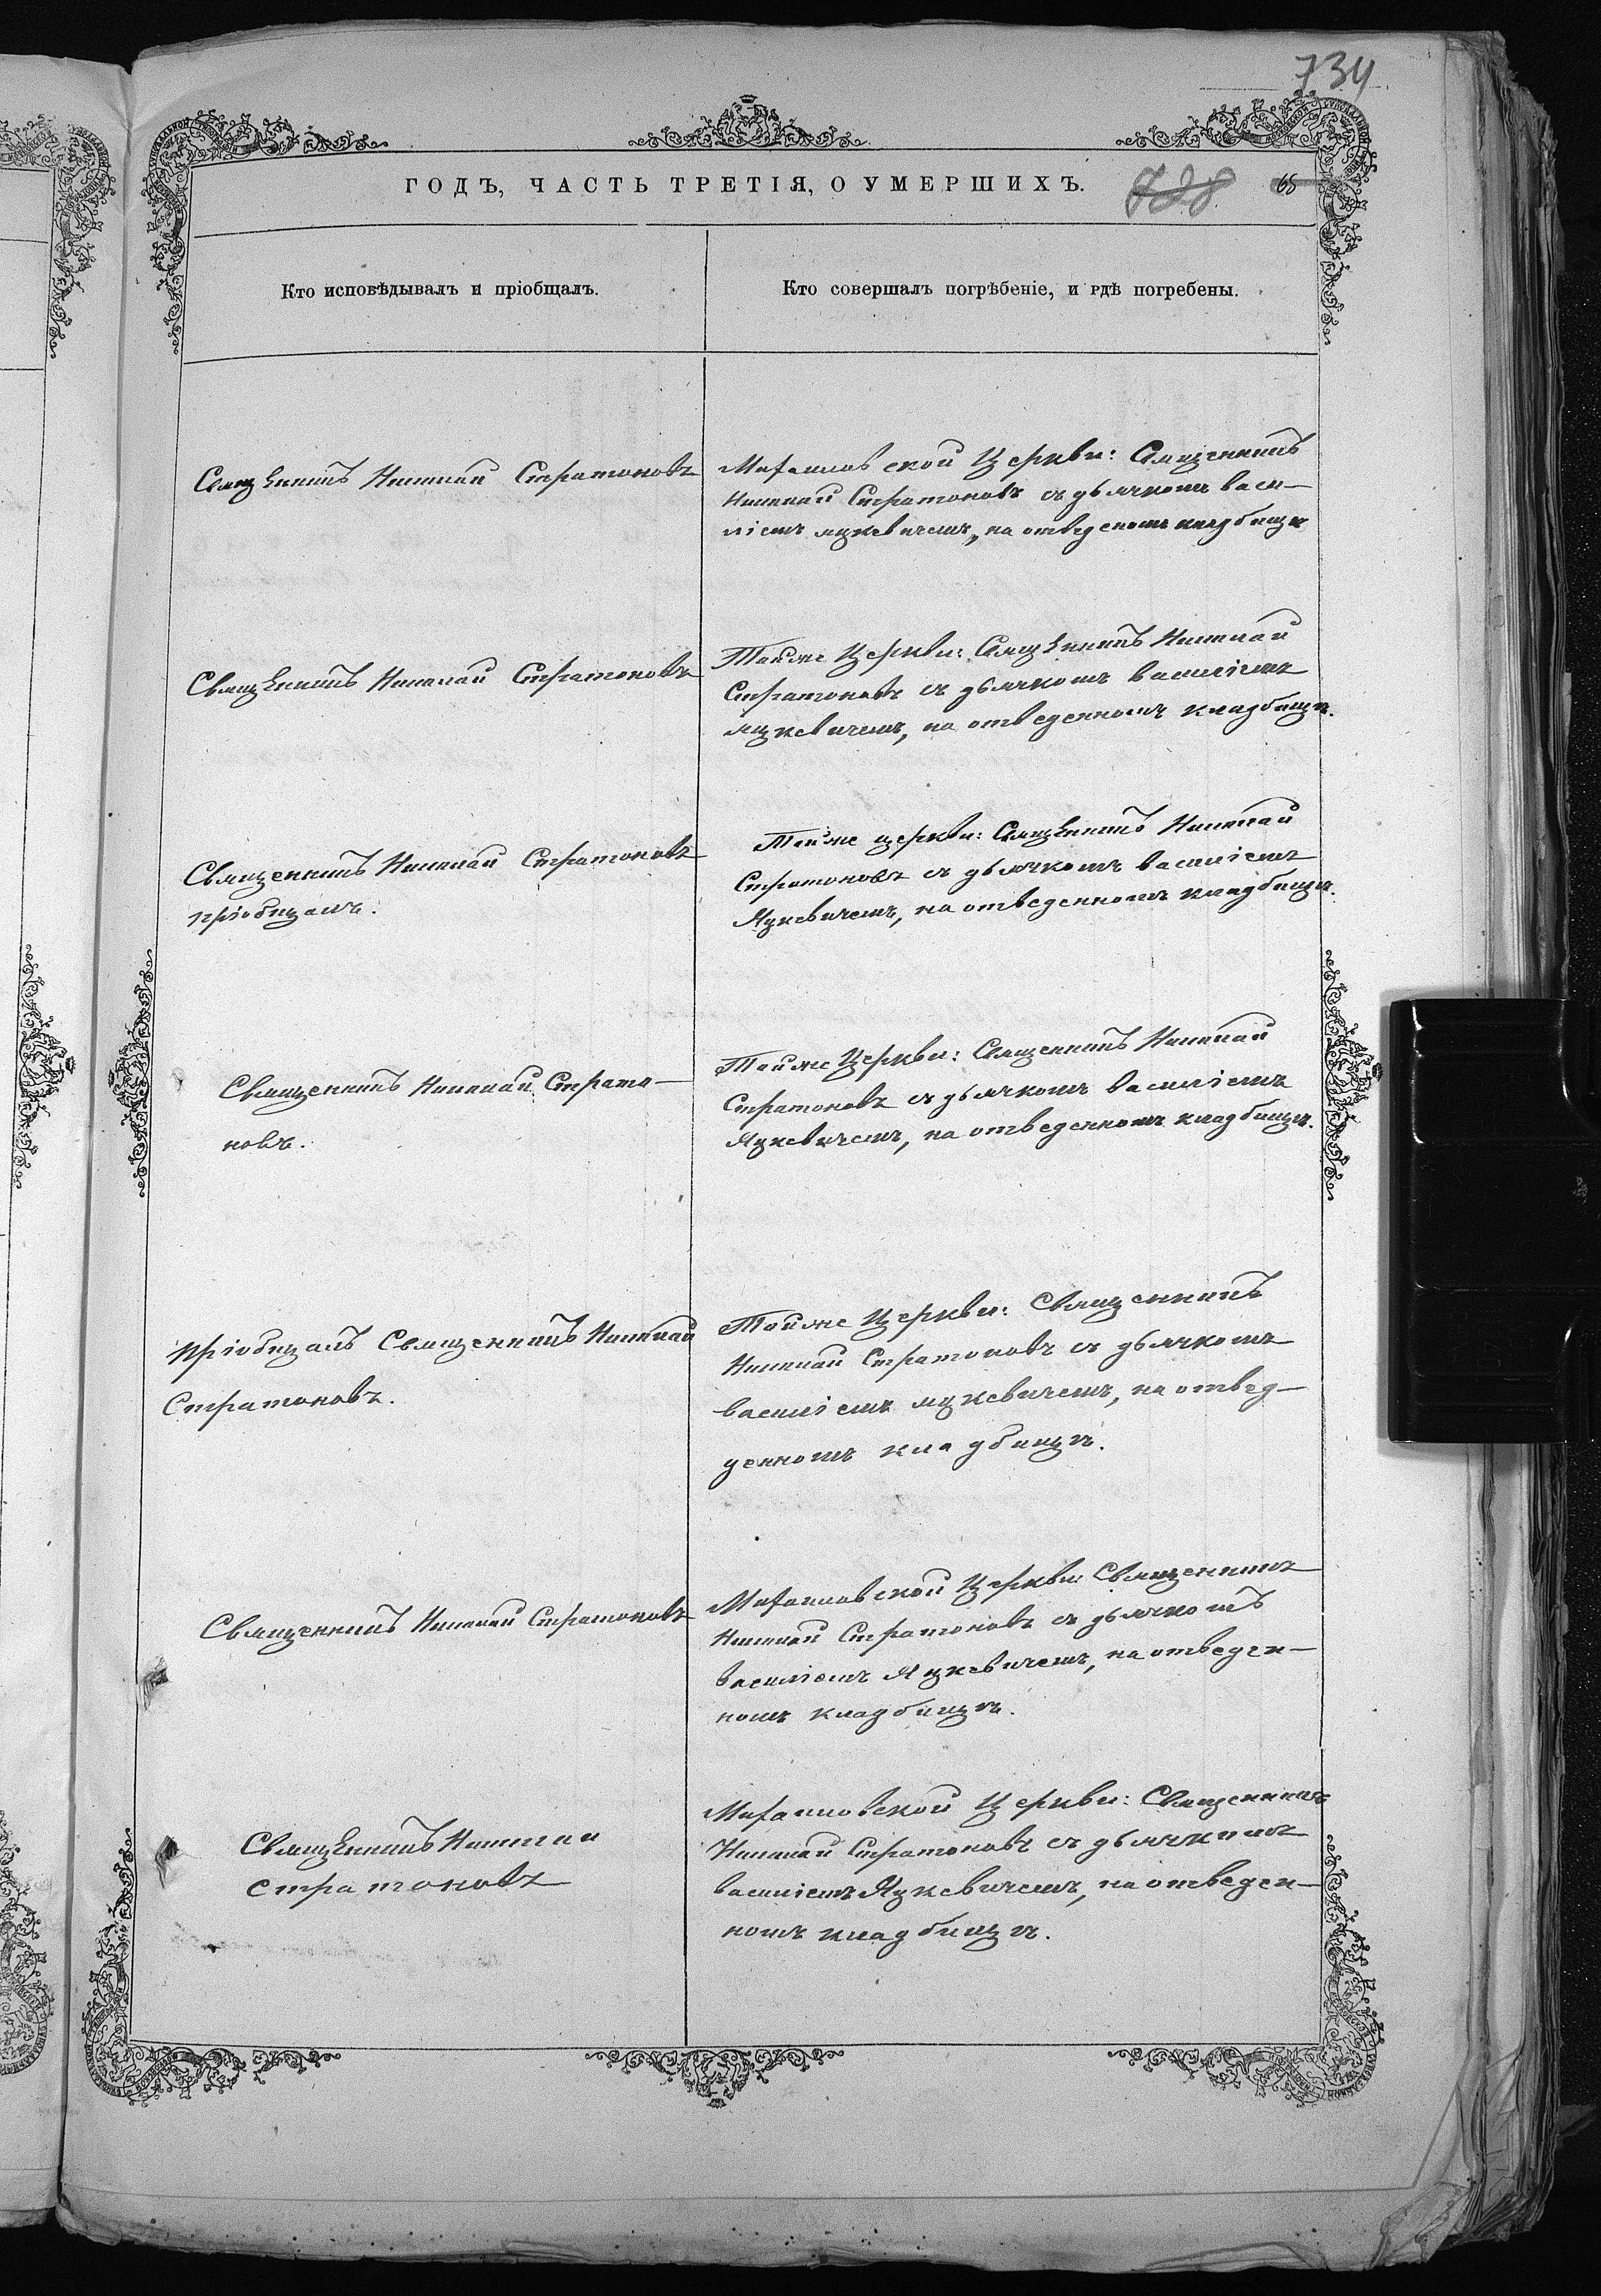 734
ГОДЪ, ЧАСТЬ ТРЕТІЯ, О УМЕРШИХЪ.
728 65
Кто исповѣдывалъ и пріобщалъ.
Кто совершалъ погрѣбеніе, и гдѣ погребены.
Священникъ Николай Стратоновъ
Михаиловской Церкви: Священникъ
Николай Стратоновъ съ дьячкомъ Васи-
ліемъ Яцкевичемъ, на отведеномъ кладбищѣ
Священникъ Николай Стратоновъ
Тойже Церкви: Священникъ Николай
Стратоновъ съ дьячкомъ Василіемъ
Яцкевичемъ, на отведенномъ кладбищѣ.
Священникъ Николай Стратоновъ
пріобщалъ.
Тойже церкви: Священникъ Николай
Стратоновъ съ дьячкомъ Василіемъ
Яцкевичемъ, на отведенномъ кладбищѣ.
Священникъ Николай Страто-
новъ.
Тойже Церкви: Священникъ Николай
Стратоновъ съ дьячкомъ Василіемъ
Яцкевичемъ, на отведенномъ кладбищѣ.
Пріобщалъ Священникъ Николай
Стратоновъ.
Тойже Церкви: Священникъ
Николай Стратоновъ съ дьячкомъ
Василіемъ Яцкевичемъ, на отвед-
денномъ кладбищѣ.
Священникъ Николай Стратоновъ
Михаиловской Церкви: Священникъ
Николай Стратоновъ съ дьячкомъ
Василіемъ Яцкевичемъ, на отведен-
номъ кладбищѣ.
Священникъ Николай
Стратоновъ
Михаиловской Церкви: Священникъ
Николай Стратоновъ съ дьячкомъ
Василіемъ Яцкевичемъ, на отведен-
номъ кладбищѣ.